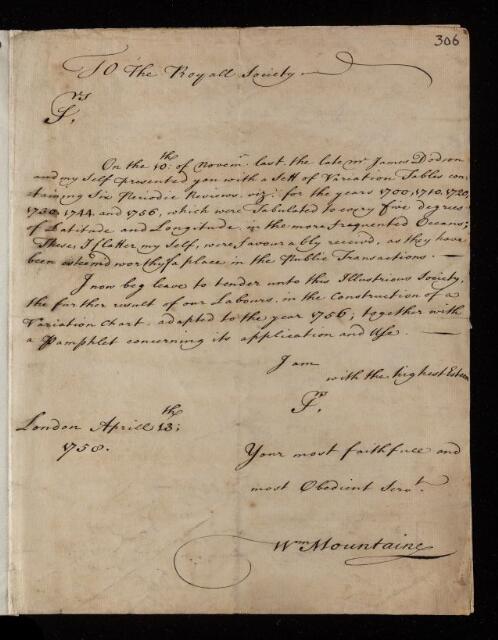 306
TO The Royall Society
Srs,
On the 10th: of Novemr. last the late Mr. James Dodson
and my Self presented you with a Sett of Variation Tables con-
taining Six Periodic Reviews, viz: for the years 1700, 1710, 1720,
1730, 1744 and 1756, which were Tabulated to every five degrees
of Latitude and Longitude in the more frequented Oceans;
These, I flatter my Self, were favourably receivd, as they have
been esteemd worthy of a place in the Public Transactions.
I now beg leave to tender unto this Illustrious Society,
the further result of our Labours, in the Construction of a
Variation Chart adapted to the year 1756; together with
a Pamphlet concerning its application and Use.
I am
with the highest Esteem
Srs,
London Aprill 13th;
1758.
Your most faithfull and
most Obedient Servt.
Wm Mountaine